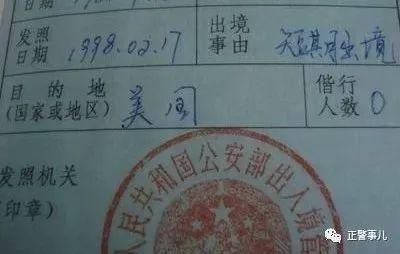 发照
日期 1998.02.17
出境
事由 短期出境
目的地
(国家或地区) 美国
偕行
人数 0
发照机关
印章)
人民共和国公安部出入境管
正警事儿